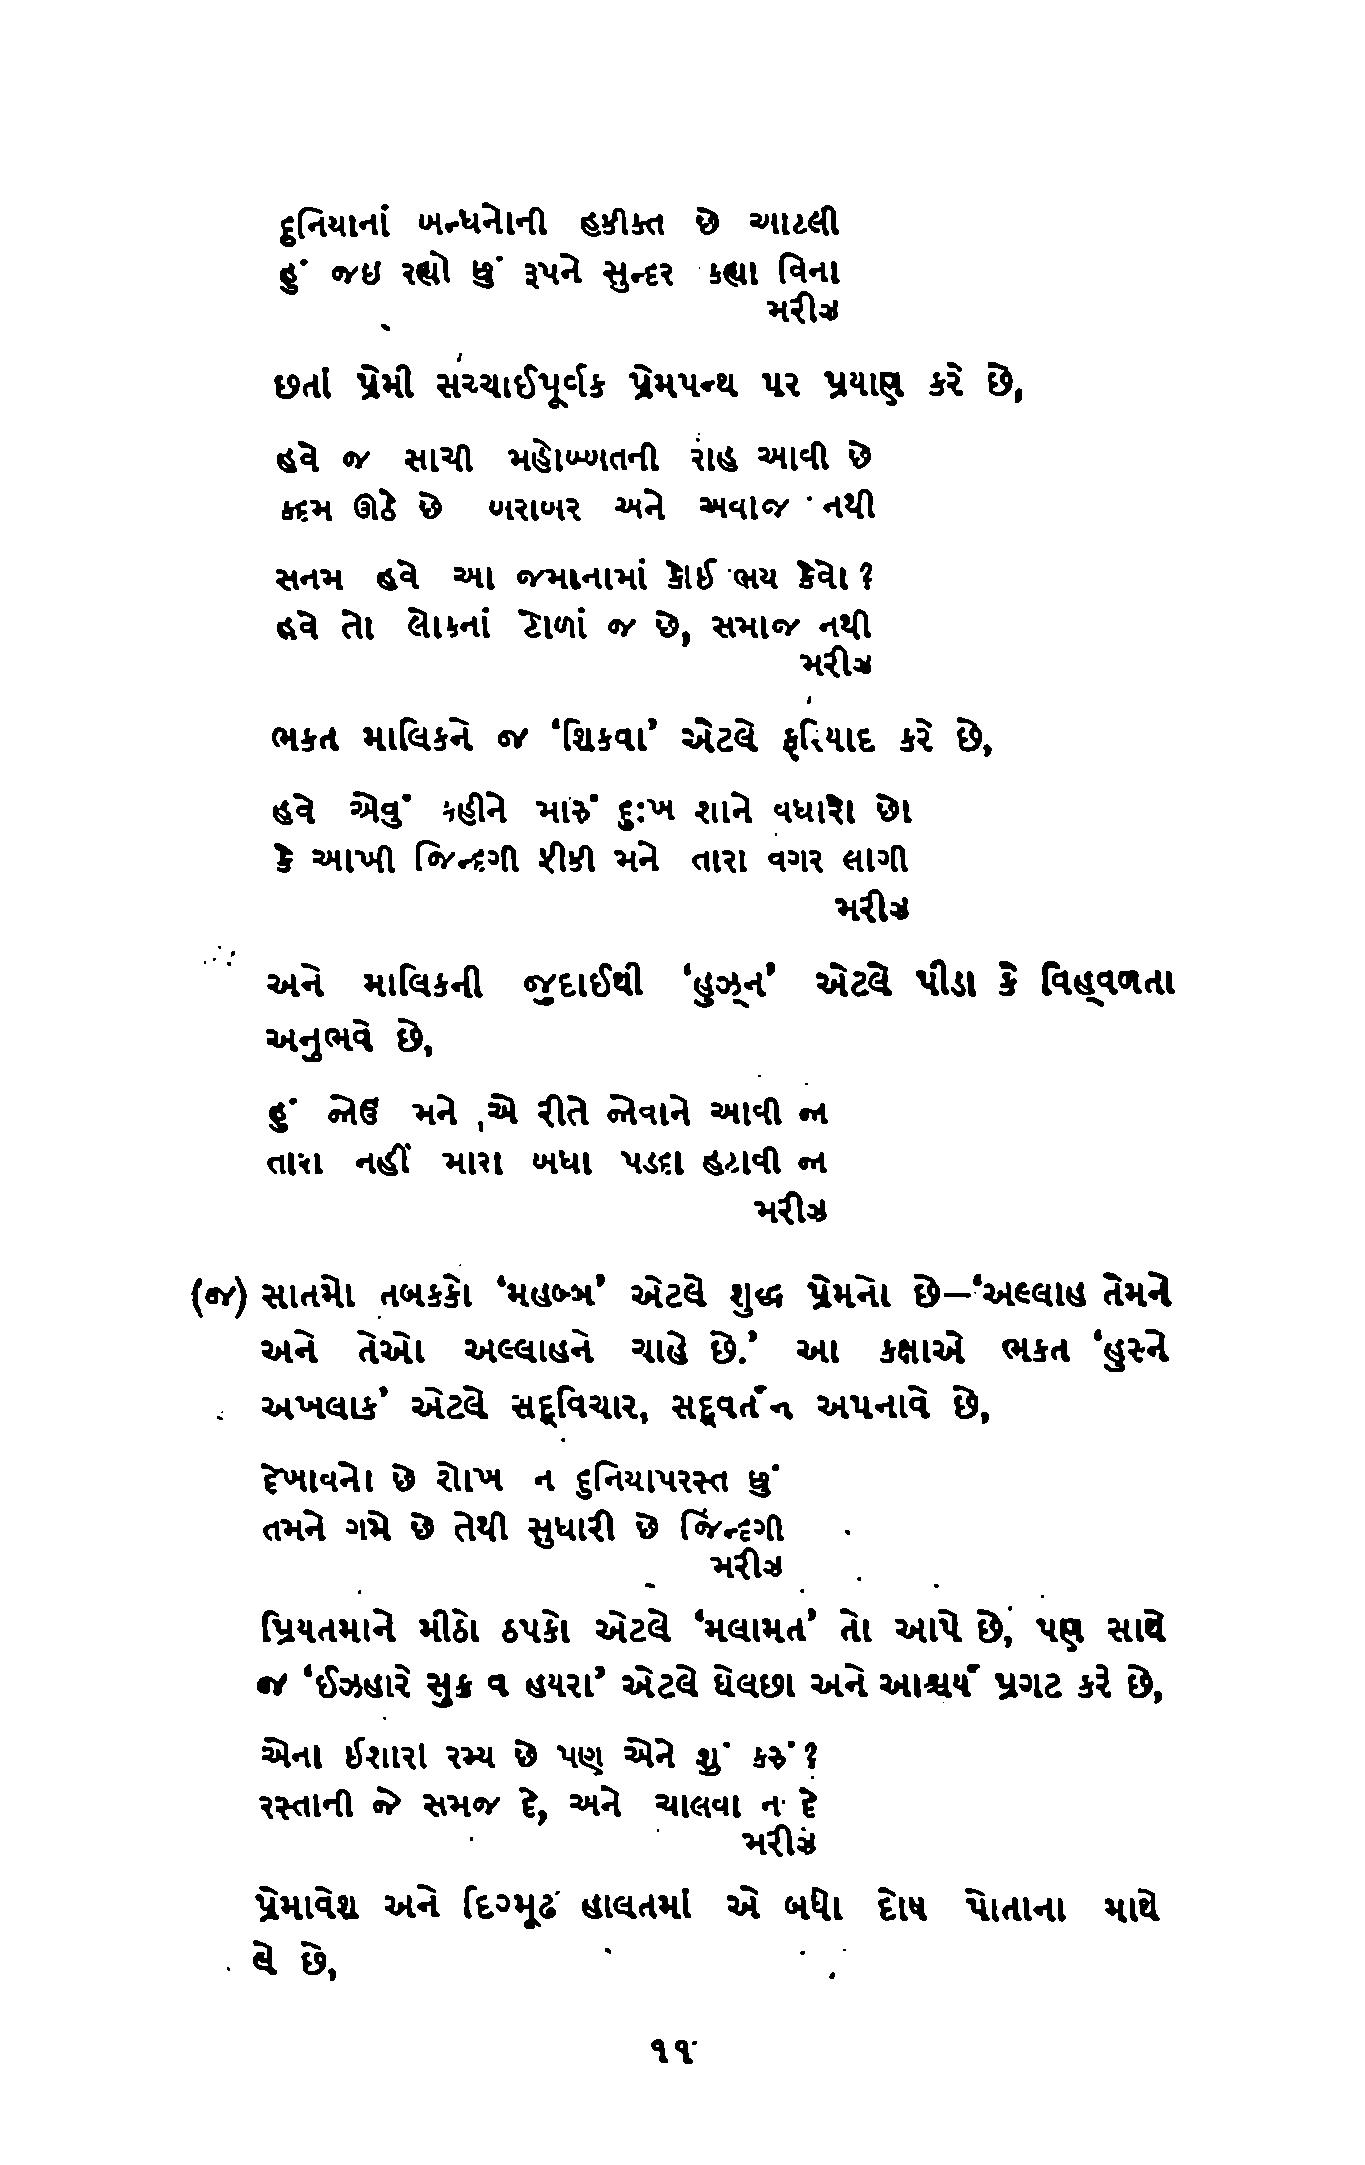 દુનિયાનાં બન્ધનોની હકીક્ત છે આટલી
હું જઇ રહ્યો છું રૂપને સુન્દર કહ્યા વિના
મરીઝ
છતાં પ્રેમી સચ્ચાઈપૂર્વક પ્રેમપન્થ પર પ્રયાણ કરે છે,
હવે જ સાચી મહોબ્બતની રાહ આવી છે
કદમ ઊઠે છે બરાબર અને અવાજ નથી
સનમ હવે આ જમાનામાં કોઈ ભય કેવો ?
હવે તો લોકનાં ટોળાં જ છે, સમાજ નથી
મરીઝ
ભકત માલિકને જ ‘શિકવા’ એટલે ફરિયાદ કરે છે,
હવે એવું કહીને મારું દુઃખ શાને વધારો છો
કે આખી જિન્દગી ફીકી મને તારા વગર લાગી
મરીઝ
અને માલિકની જુદાઈથી ‘હુઝ્ન’ એટલે પીડા કે વિહ્વળતા
અનુભવે છે,
હું જોઉં મને એ રીતે જોવાને આવી જા
તારા નહીં મારા બધા પડદા હટાવી જા
મરીઝ
(જ) સાતમો તબકકો ‘મહબ્બ’ એટલે શુદ્ધ પ્રેમનો છે—‘અલ્લાહ તેમને
અને તેઓ અલ્લાહને ચાહે છે.’ આ કક્ષાએ ભકત ‘હુસ્ને
અખલાક’ એટલે સદ્વિચાર, સદ્વર્તન અપનાવે છે,
દેખાવનો છે શોખ ન દુનિયાપરસ્ત છું
તમને ગમે છે તેથી સુધારી છે જિંન્દગી
મરીઝ
પ્રિયતમાને મીઠો ઠપકો એટલે ‘મલામત’ તો આપે છે, પણ સાથે
જ ‘ઈઝહારે સુક્ર વ હયરા’ એટલે ઘેલછા અને આશ્ચર્ય પ્રગટ કરે છે,
એના ઈશારા રમ્ય છે પણ એને શું કરું ?
રસ્તાની જે સમજ દે, અને ચાલવા ન દે
મરીઝ
પ્રેમાવેશ અને દિગ્મૂઢ હાલતમાં એ બધો દોષ પોતાના માથે
લે છે,
૧૧